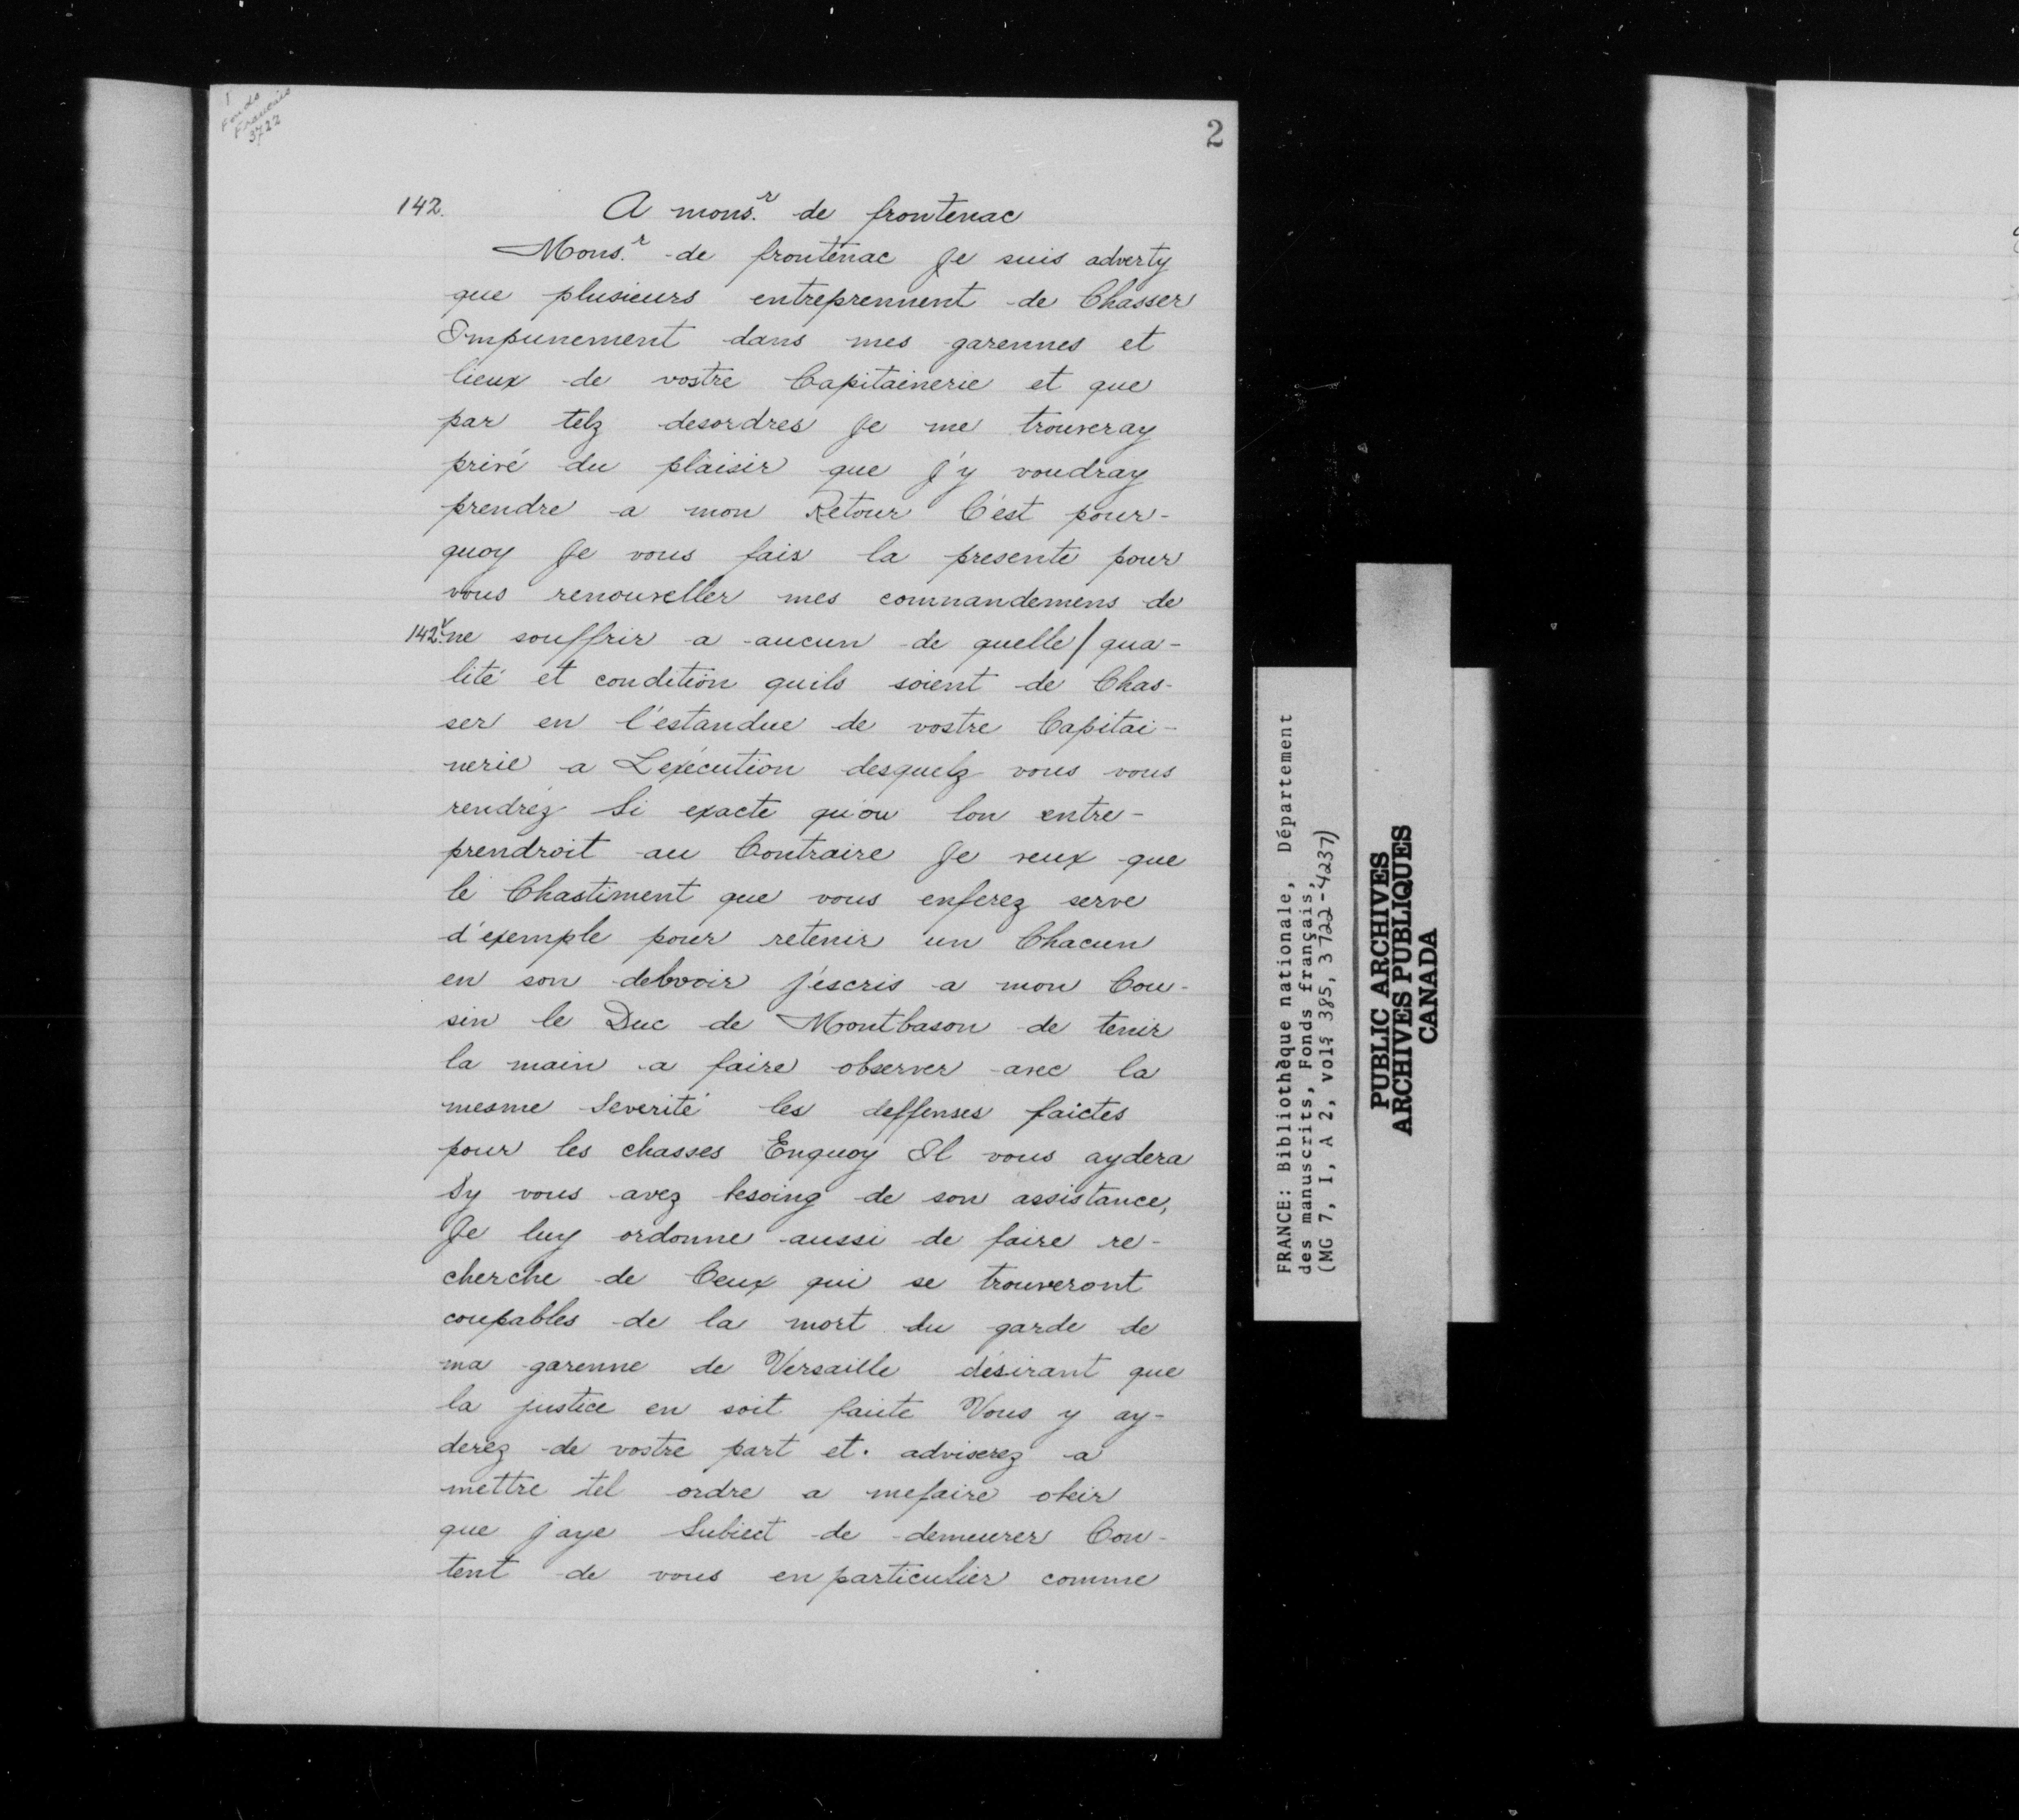 1
Fonds
Français
3722
2
142.
A mons.r de frontenac
Mons.r de frontenac Je suis adverty
que plusieurs entreprennent de Chasser
Impunement dans mes garennes et
lieux de vostre Capitainerie et que
par telz desordres Je me trouveray
privé du plaisir que J'y voudray
prendre a mon Retour C'est pour-
quoy Je vous fais la presente pour
vous renouveller mes commandemens de
142v. ne souffrir a aucun de quelle / qua-
lité et condition quils soient de Chas-
ser en l'estandue de vostre Capitai-
nerie a L'exécution desquelz vous vous
rendréz Si exacte qu'ou lon entre-
prendroit au Contraire Je veux que
le Chastiment que vous enferez serve
d'exemple pour retenir un Chacun
en son debvoir J'escris a mon Cou-
sin le Duc de Montbason de tenir
la main a faire observer avec la
mesme Severité les deffenses faictes
pour les chasses Enquoy Il vous aydera
Sy vous avez besoing de son assistance,
Je luy ordonne aussi de faire re-
cherche de Ceux qui se trouveront
coupables de la mort du garde de
ma garenne de Versaille désirant que
la justice en soit faite Vous y ay-
derez de vostre part et. adviserez a
mettre tel ordre a mefaire obeir
que jaye Subiect de demeurer Con-
tent de vous en particulier comme
FRANCE: Bibliothèque nationale, Département
des manuscrits, Fonds français,
(MG 7, I, A 2, vols 385, 3722-4237)
PUBLIC ARCHIVES
ARCHIVES PUBLIQUES
CANADA